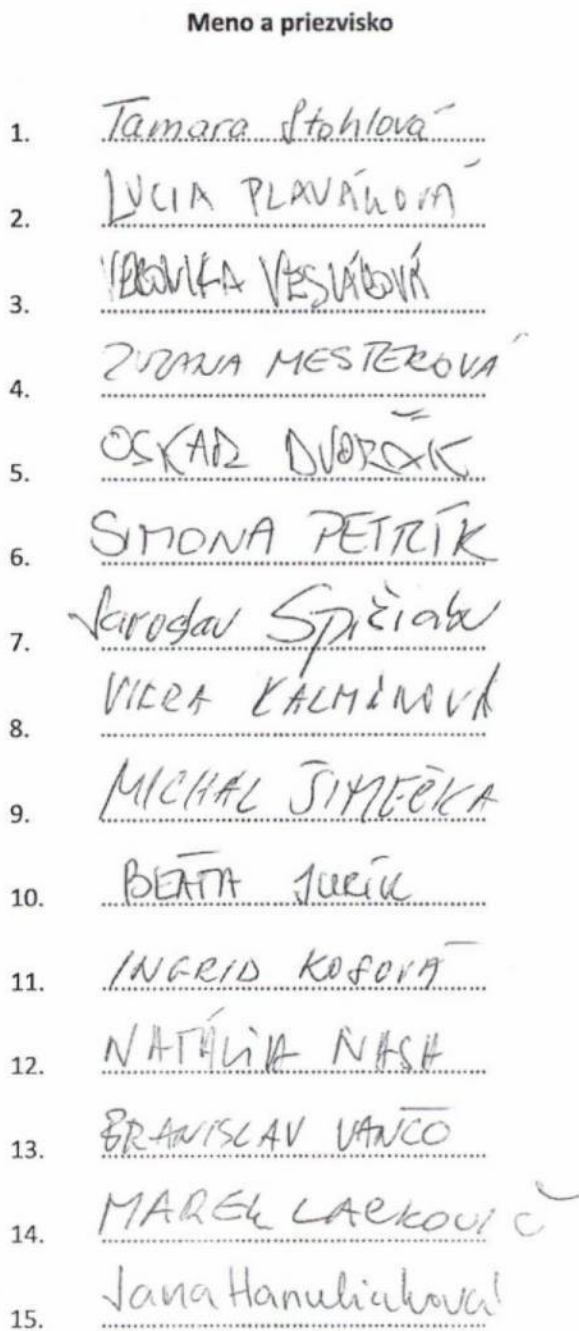 Meno a priezvisko
1. Tamara Stohlová
2. LUCIA PLAVÁKOVÁ
3. VERONIKA VESLÁROVÁ
4. ZUZANA MESTEROVÁ
5. OSKAR DVOŘÁK
6. SIMONA PETRÍK
7. Jaroslav Spišiak
8. VIERA KALMÁROVÁ
9. MICHAL ŠIMEČKA
10. BEÁTA JURÍK
11. INGRID KOSOVÁ
12. NATÁLIA NASH
13. BRANISLAV VANČO
14. MAREK LACKOVIČ
15. Jana Hanuliaková